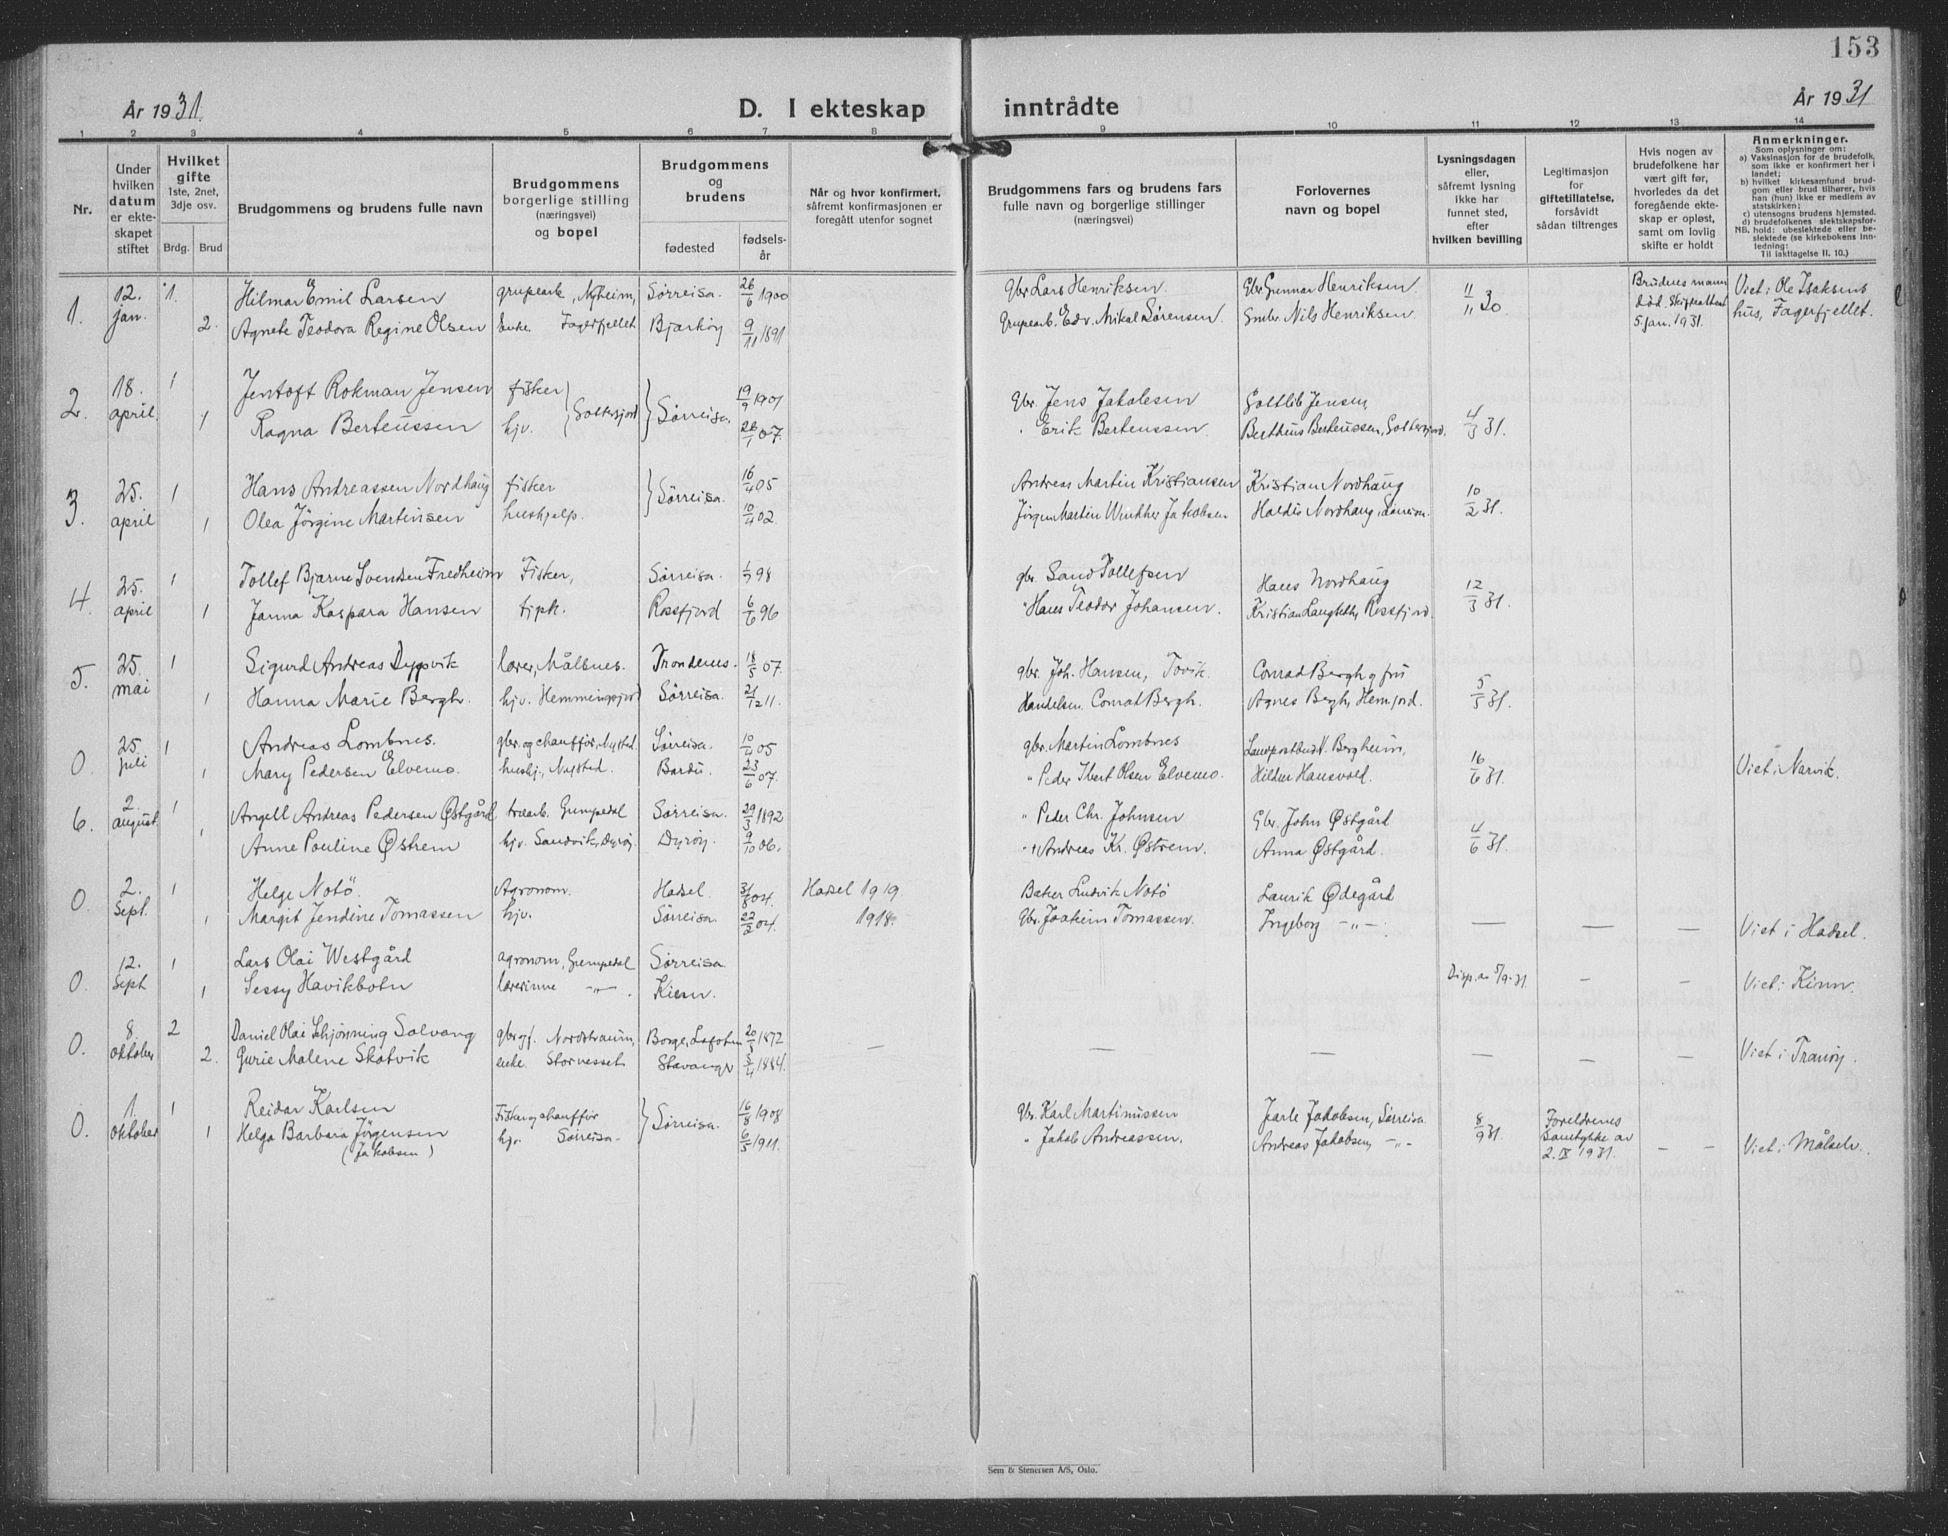 153
År 1931.
D. I ekteskap inntrådte
År 1931
1 2 3 4 5 6 7 8 9 10 11 12 13 14
Nr.
Under hvilken datum er ekteskapet stiftet
Hvilket gifte
1ste, 2net, 3dje osv.
Brdg. Brud
Brudgommens og brudens fulle navn
Brudgommens borgerlige stilling (næringsvei) og bopel
Brudgommens og brudens
fødested
fødselsår
Når og hvor konfirmert, såfremt konfirmasjonen er foregått utenfor sognet
Brudgommens fars og brudens fars fulle navn og borgerlige stillinger (næringsvei)
Forlovernes navn og bopel
Lysningsdagen eller, såfremt lysning ikke har funnet sted, efter hvilken bevilling
Legitimasjon for giftetillatelse, forsåvidt sådan tiltrenges
Hvis nogen av brudefolkene har vært gift før, hvorledes da det foregående ekteskap er opløst, samt om lovlig skifte er holdt
Anmerkninger.
Som oplysninger om:
a) Vaksinasjon for de brudefolk, som ikke er konfirmert her i landet;
b) hvilket kirkesamfund brudgom eller brud tilhører, hvis han (hun) ikke er medlem av statskirken;
c) utensogns brudens hjemsted.
d) brudefolkenes slektskapsforhold: ubeslektede eller beslektede (se kirkebokens innledning:
NB.
Til iakttagelse II. 10.)
1. 12. jan. 1. Hilmar Emil Larsen grupearb., Nyheim, Sørreisa. 26/6 1900 gbr Lars Henriksen. Gbr Gunnar Henriksen. 11/11 30 Brudens mann død. Skifteattest 5 jan. 1931. Viet i Ole Isaksens hus, Fagerfjellet.
2. Agnete Teodora Regine Olsen Enke. Fagerfjellet Bjarkøy 9/11 1891 Grupearb. Edv. Mikal Sørensen. Gmbr Nils Henriksen.
2. 18. april. 1 Jentoft Rokman Jensen fisker Gottesjord Sørreisa. 19/9 1901 Gbr. Jens Jakobsen Gottlib Jensen, 4/3 31.
1 Ragna Berteussen hjv. 26/1 07. " Erik Berteussen. Bertheus Berteussen,
3. 25. april 1 Hans Andreassen Nordhaug fisker Sørreisa. 16/4 05 Andreas Martin Kristiansen Kristian Nordhaug 10/2 31.
1 Olea Jørgine Martinsen hushjelp. 10/4 02. Jørgen Martin Winther Jakobsen Haldis Nordhaug, Sørreisa.
4. 25. april 1 Tollef Bjarne Svendsen Fredheim Fisker, Sørreisa. 98 gbr. Tollefsen Hans Nordhaug 12/3 31.
1 Janna Kaspara Hansen Rossfjord 6/6 96 " Hans Teodor Johansen. Kristian Rossfjord.
5. 25. mai 1 Sigurd Andreas Dypsvik lærer, Målsnes. Trondenes. 18/5 07. gbr. Joh. Hansen, Tovik. Conrad Bergh og fru 5/5 31.
1 Hanna Marie Bergh. hjv. Hemmingsjord Sørreisa. 21/12 11. Handelsm. Conrad Bergh. Agnes Bergh, Hemjord.
0. 25. juli 1 Andreas Lombnes. gbr. og chauffør, Nysted. Sørreisa. 10/4 05 gbr. Martin Lombnes Landpostbud V. Bergheim, 16/6 31. Viet i Narvik.
1 Mary Pedersen Elvemo. hushj., Nysted. Bardu. 23/6 07. " Peder Olsen Elvemo. Hildur Hansvold.
6. 2. august. 1 Angell Andreas Pedersen Østgård trearb. Grumpedal Sørreisa. 29/3 1892 " Peder Chr. Johnsen Gbr. John Østgård 4/6 31.
1 Anne Pauline Østrem hjv. Sandvik, Dyrøy. Dyrøy. 9/10 06. " Andreas Kr. Østrem. Anna Østgård.
0. 2. Sept. 1 Helge Notø. Agronom. Hadsel. 31/8 04. Hadsel 1919. Baker Ludvik Notø Laurik Ødegård
1 Margit Jendine Tomassen hjv. Sørreisa. 22/2 04. 1918. Gbr. Joakim Tomassen. Ingeborg -"- — — — Viet i Hadsel.
0. 12. Sept 1 Lars Olai Westgård agronom, Grumpedal Sørreisa Disp. av 5/9-31. - - Viet i Kinn.
1 Sessy Havikbotn lærerinne -"- . Kinn.
0. 8. oktober 2 Daniel Olai Solvang Nordstraum, Borge, Lofoten 20/3 1872 — — — — — Viet i Tranøy.
2. Gurie Malene Skotvik enke. Stornesset Stavanger 3/4 1884.
0. 1. oktober 1 Reidar Karlsen Fisker og chauffør Sørreisa. 16/8 1908 gbr. Karl Martinussen Jarle Jakobsen, Sørreisa 8/9 31. Foreldrenes samtykke av 2. IX 1931. - - Viet i Målselv.
1 Helga Barbara Jørgensen (Jakobsen) hjv. Sørreisa. 6/5 1911. " Jakob Andreassen. Andreas Jakobsen, -"-
Sem & Stenersen A/S, Oslo.